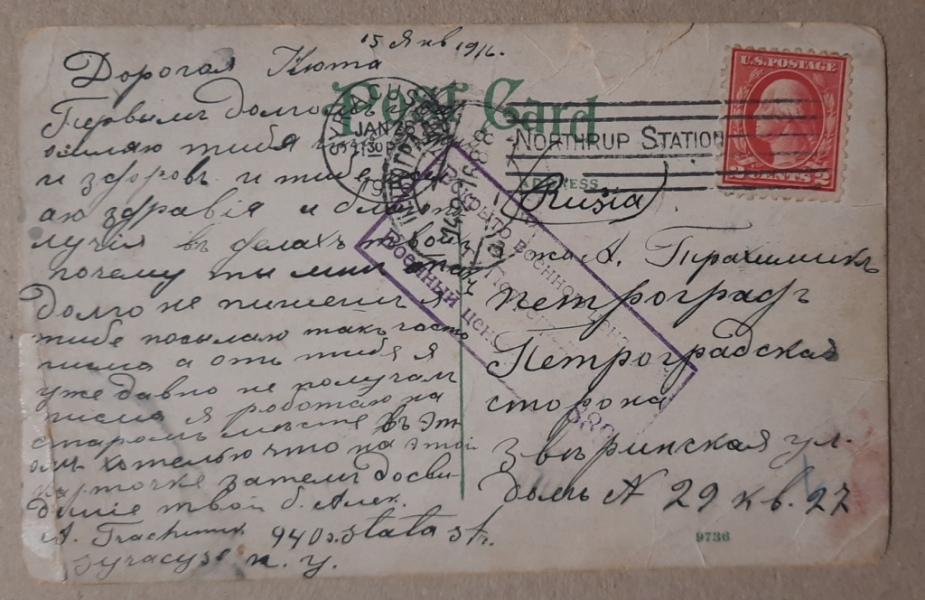 15 Янв 1916.
Дорогая Нюта
Post Card
Первымъ долгомъ
тибя
и здоровъ и тибе
аю здравія и благопо
лучія въ делахъ твоихъ
почему ты мни
Долго не пишешь я
тибе посылаю такъ часто
писма а отъ тибя я
уже давно не получал
писма я роботаю на
старомъ месте въ эт
омъ хотелью что на этой
карточке затемъ досви
даніе твой б. Алек.
A. Trachimik 940 S. State st.
Syracuse n. y.
SYRACUSE
JAN 26
1130 P
NORTHRUP STATION
U.S. POSTAGE
2 CENTS 2
ADDRESS
Russia
Вскрыто военной ценз
Военный ценз
г-жи А. Трахимикъ
Петроградъ
Петроградская
сторона
Звѣринская ул.
домъ N 29 кв. 27
9736